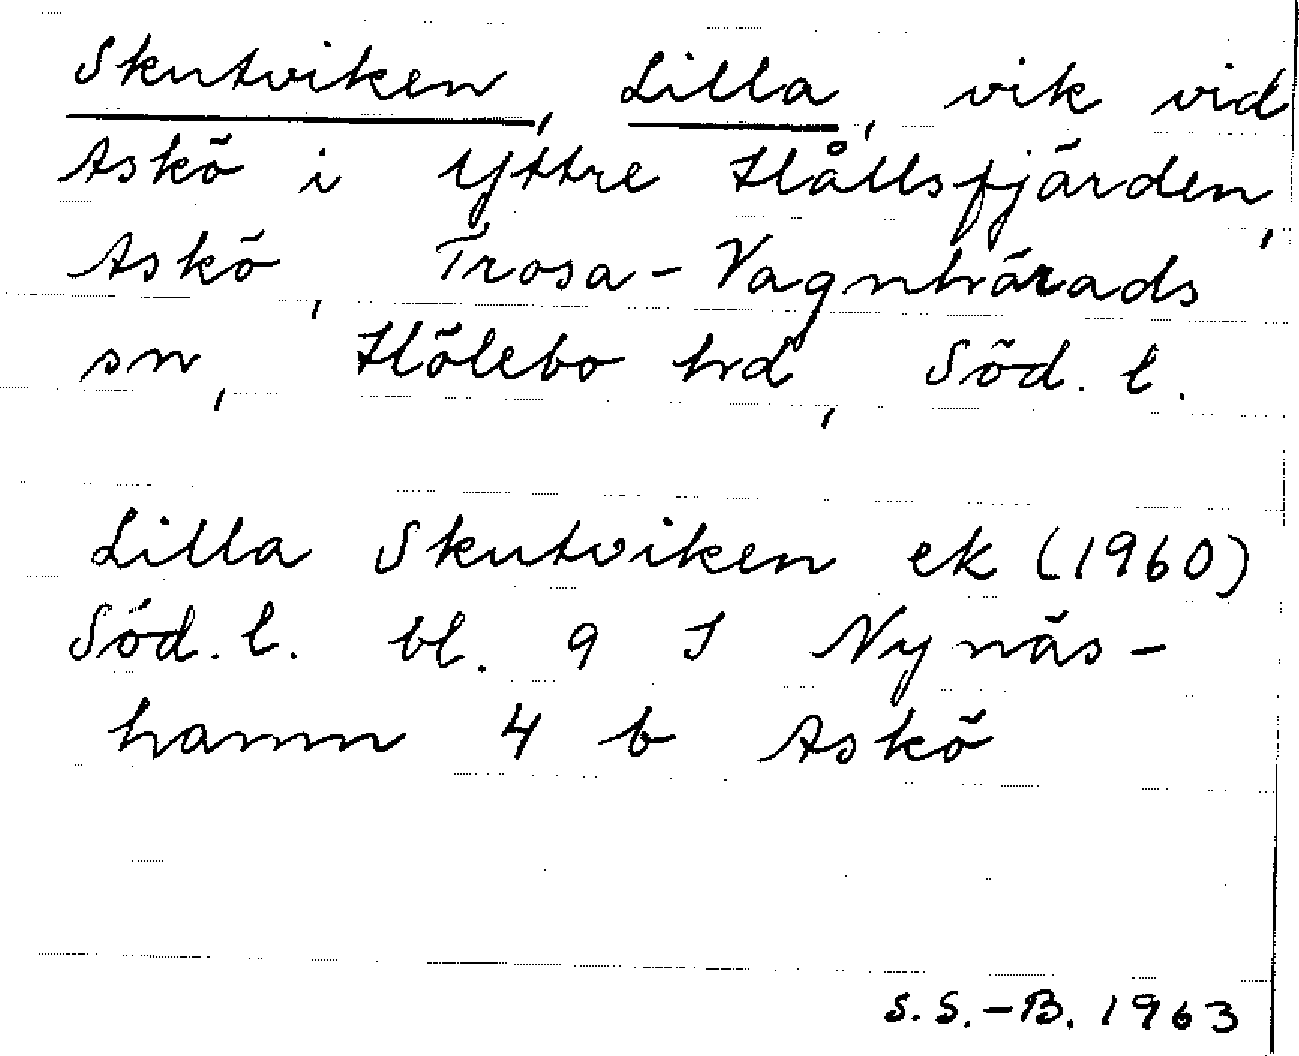 Skutviken, Lilla, vik vid
Askö i Yttre Hållsfjärden,
Askö, Trosa-Vagnhärads
sn, Hölebo hd, Söd. l.
Lilla Skutviken ek (1960)
Söd. l. bl. 9 I Nynäs-
hamn 4 b Askö
S.S.-B. 1963